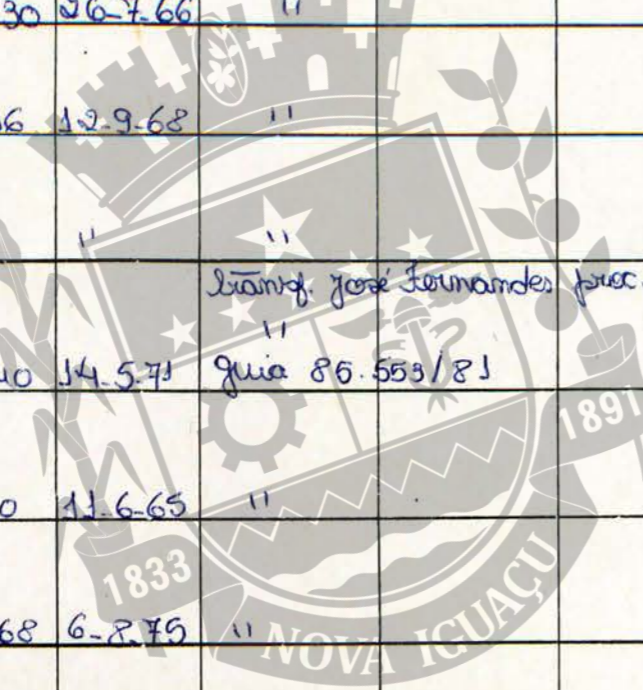 30 26-7-66 "
6 12-9-68 "
" "
transf. José Fernandes proc.
"
10 14-5-71 guia 85.553/81
0 11-6-65 "
68 6-8-75 "
1891
1833
NOVA IGUAÇU